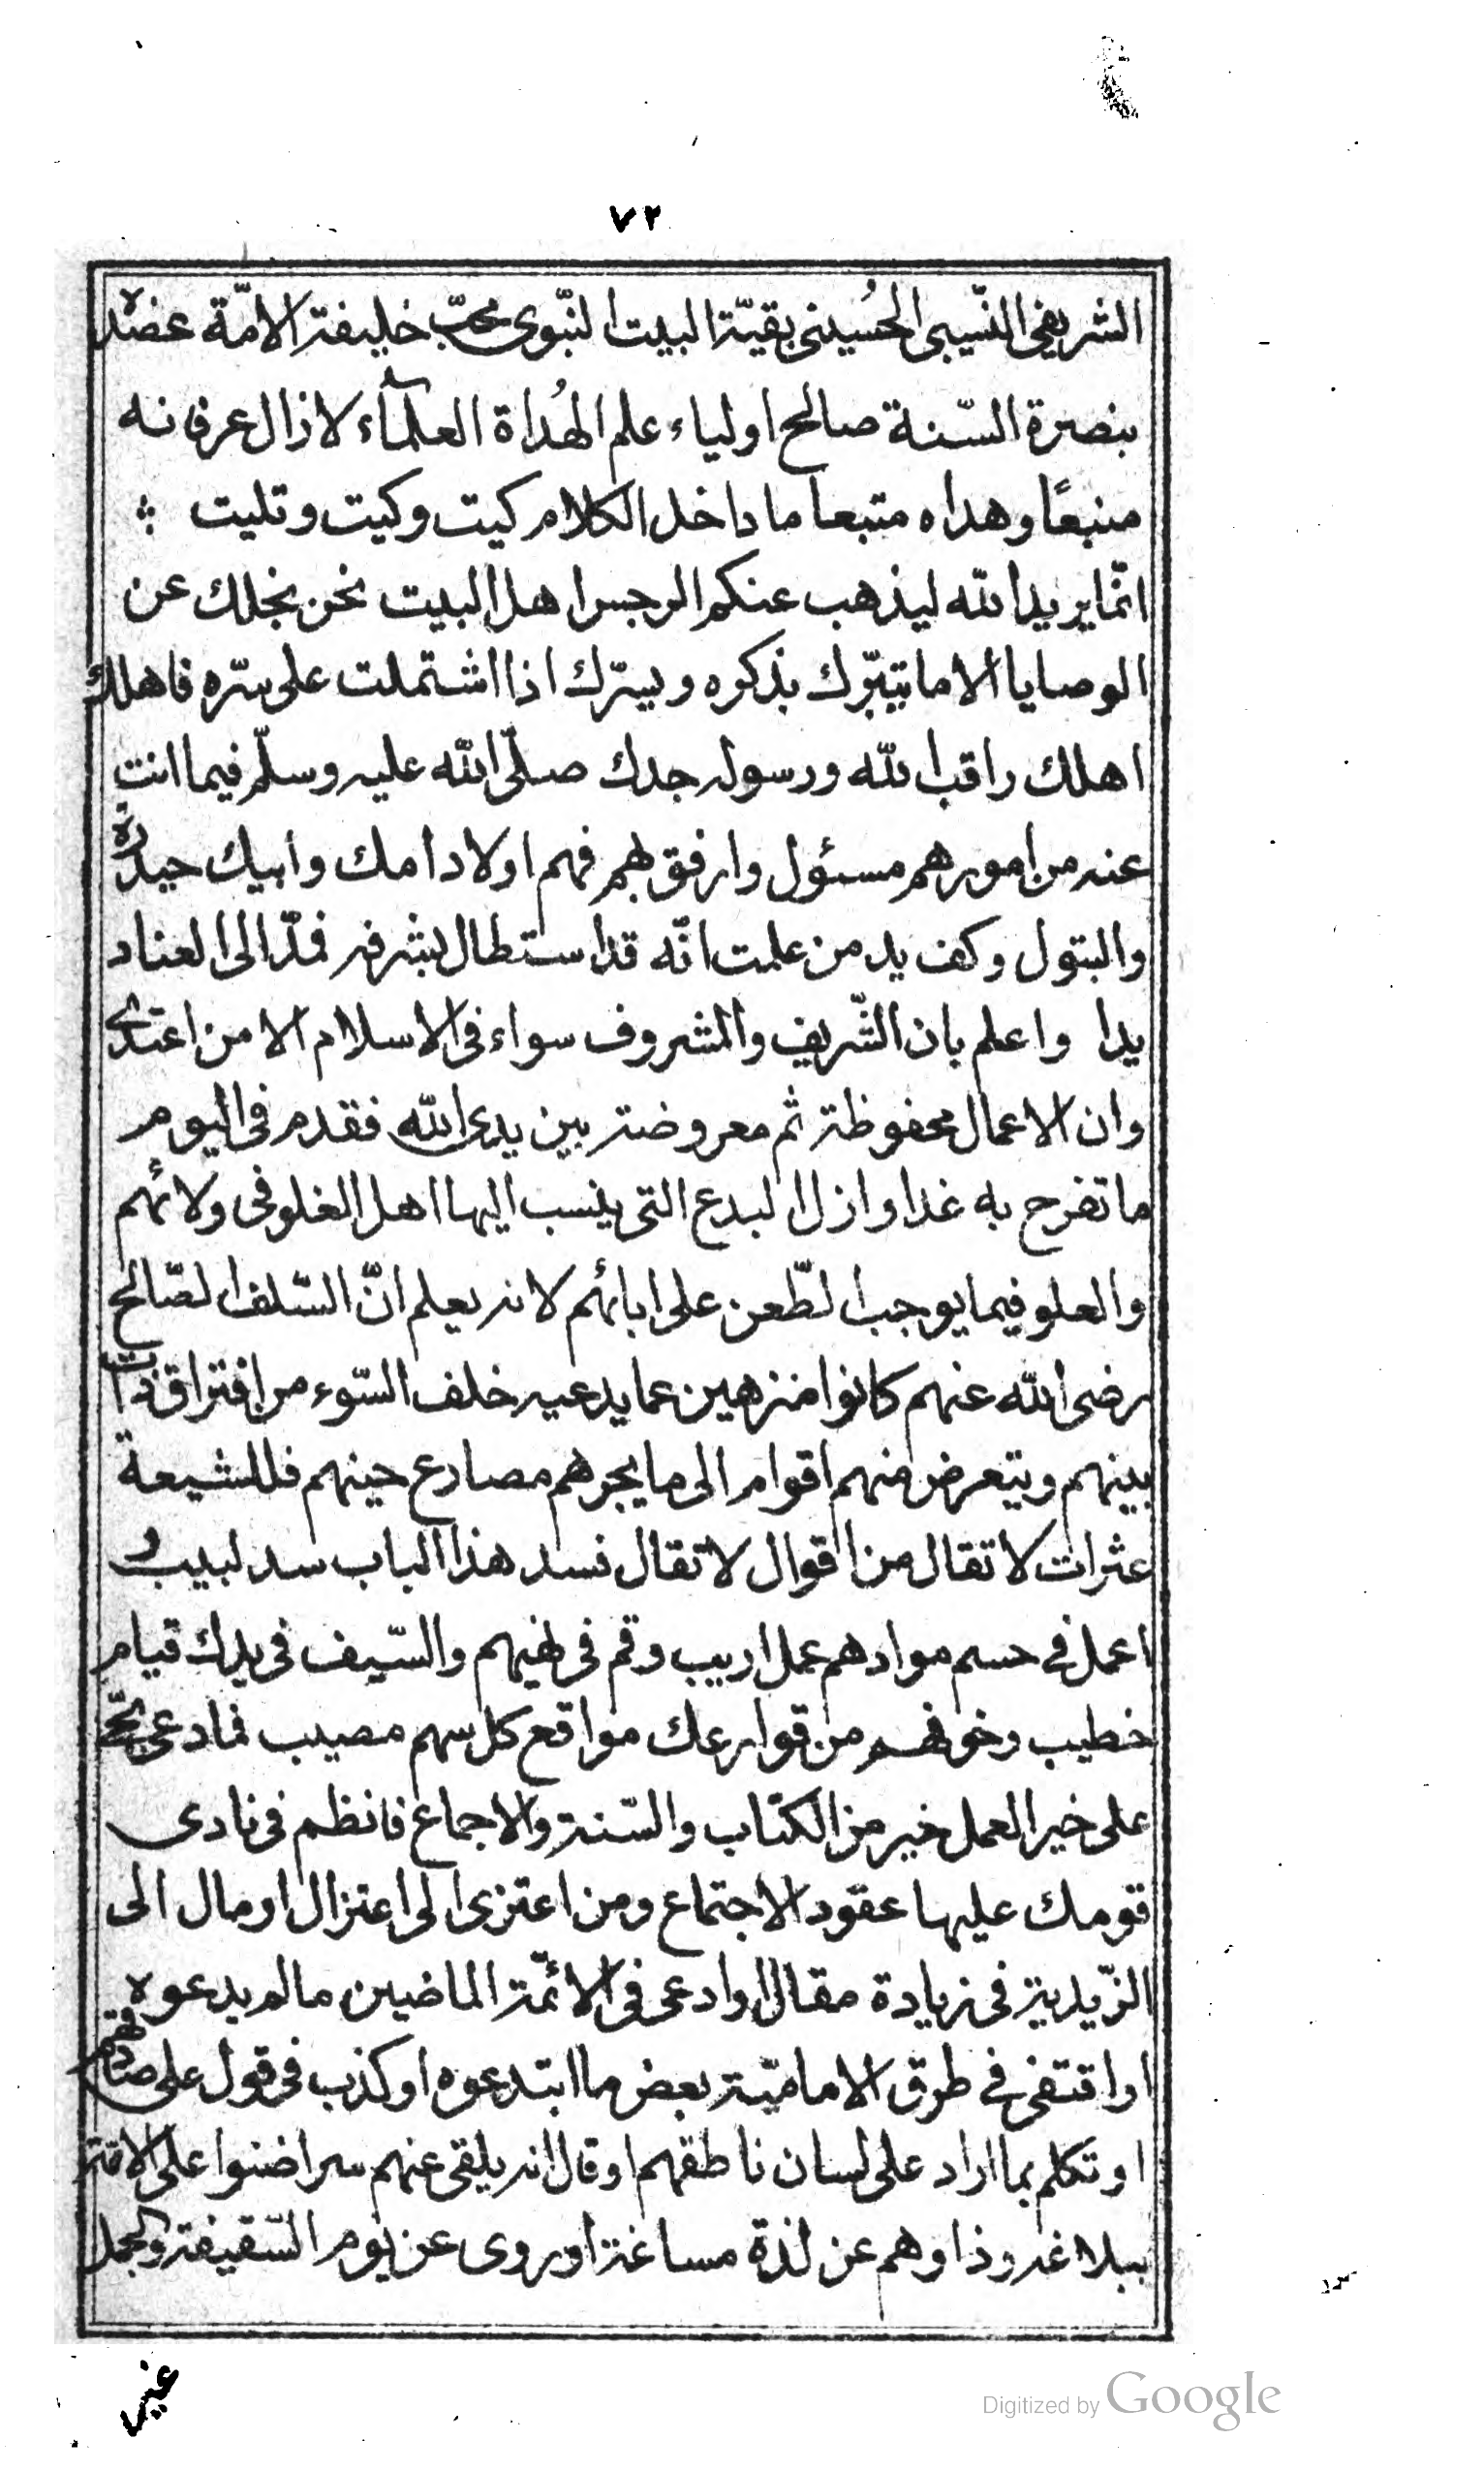 ٧٢
الشريفى النّسيبى الحُسينى بقيّة البيت النّبوى محبّ خليفة الامّة عضد
بنصرة السّنة صالح اولياء علم الهُداة العلمآء لازال عرفانه
منبعًا وهداه متبعا ما داخل الكلام كيت وكيت وتليت ؞
انّما يريد الله ليذهب عنكم الرجس اهل البيت نحن نجلك عن
الوصايا الا ما يتبّرك بذكره ويسّرك اذا اشتملت على سّره فاهلك
اهلك راقب الله ورسوله جدك صلّى الله عليه وسلّم فيما انت
عنه من امورهم مسئول وارفق بهم فهم اولاد امك وابيك حيدرة
والبتول وكف يد من علمت انّه قد استطال بشرفه فمدّ الى العناد
يدا واعلم بان الشّريف والمشروف سواء فى الاسلام الا من اعتدى
وان الاعمال محفوظة ثم معروضة بين يدى الله فقدم فى اليوم
ما تفرح به غدا وازل البدع التى ينسب اليها اهل الغلو فى ولائهم
والعلو فيما يوجب الطّعن على ابائهم لانه يعلم انّ السّلف الصّالح
رضى الله عنهم كانوا منزهين عما يدعيه خلف السّوء من افتراق ذات
بينهم ويتعرض منهم اقوام الى ما يجرهم مصارع حينهم فللشيعة
عثرات لا تقال من اقوال لا تقال فسد هذا الباب سد لبيب و
اعمل فى حسم موادهم عمل اريب وقم فى نهيهم والسّيف فى يدك قيام
خطيب وخوفهم من قوارعك مواقع كل سهم مصيب فما دعى بحىّ
على خير العمل خير من الكتاب والسّنة والاجماع فانظم فى نادى
قومك عليها عقود الاجتماع ومن اعتزى الى اعتزال او مال الى
الزّيدية فى زيادة مقال او ادعى فى الائمّة الماضين ما لم يدعوه
او اقتفى فى طرق الاماميّة بعض ما ابتدعوه او كذب فى قول على صادقهم
او تكلم بما اراد على لسان ناطقهم او قال انه يلقى عنهم سرا ضنوا على الامّة
ببلاغه وذاوهم عن لذة مساغة او روى عن يوم السّقيفة والجمل
غير
Digitized by Google